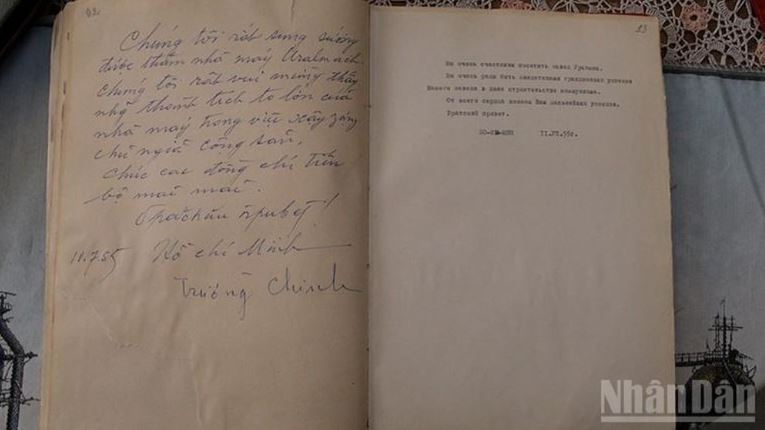 Chúng tôi rất sung sướng
được thăm nhà máy Uralmach.
Chúng tôi rất vui mừng thấy
những thành tích to lớn của
nhà máy trong việc xây dựng
chủ nghĩa cộng sản,
chúc các đồng chí tiến
bộ mãi mãi.
привет!
11.7.55 Hồ chí Minh
Trường Chinh
83
Мы очень счастливы посетить завод Уралмаш.
Мы очень рады быть свидетелями грандиозных успехов
Вашего завода в деле строительства коммунизма.
От всего сердца желаем Вам дальнейших успехов.
Братский привет.
ХО-ШИ-МИН 11.УП.55г.
NhânDân